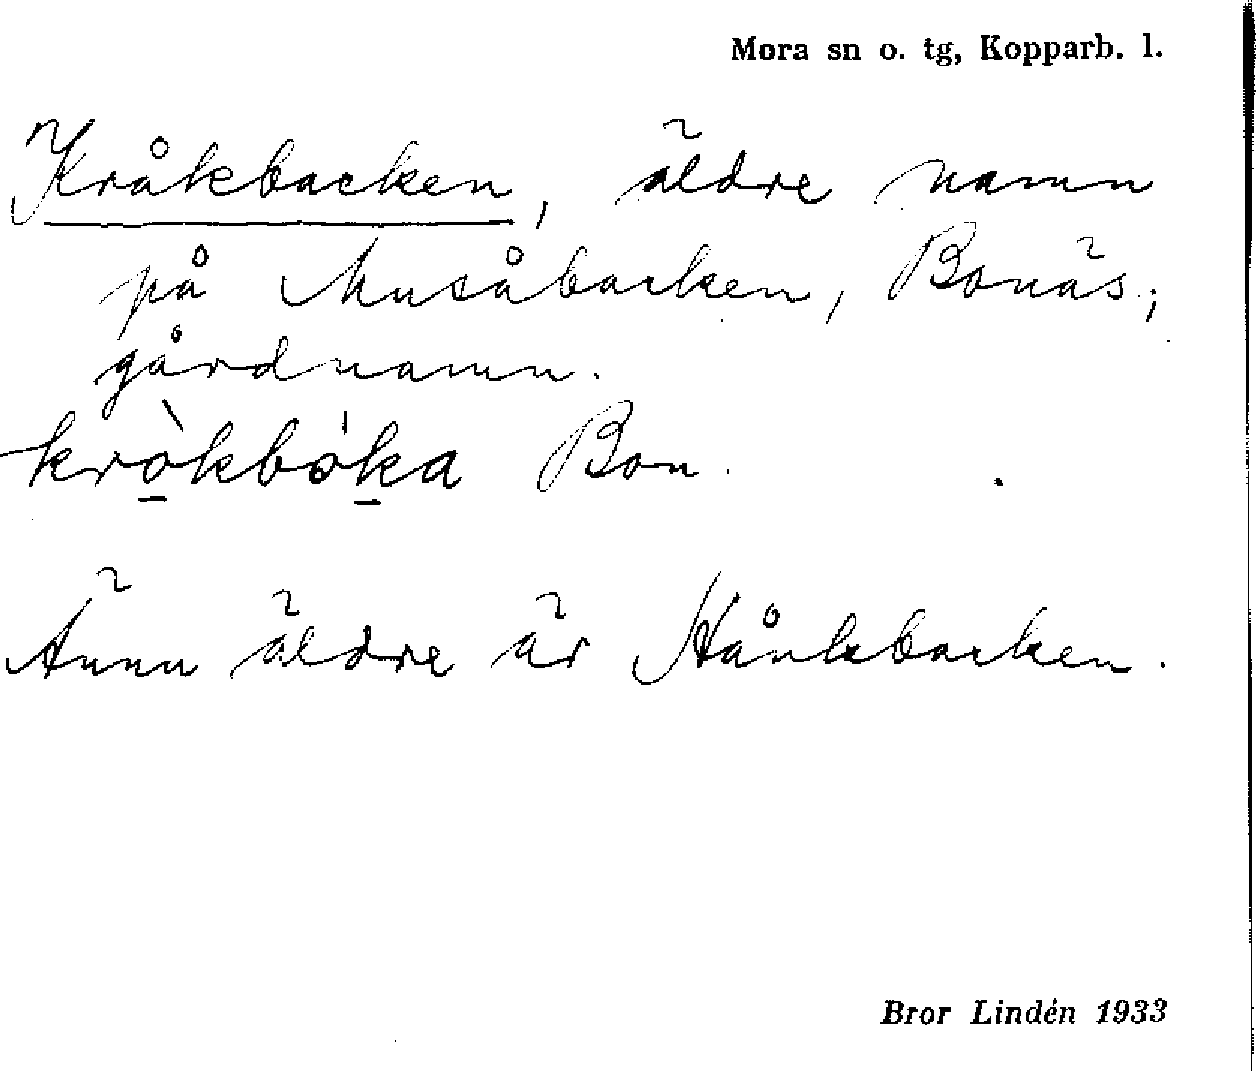 Mora sn o. tg, Kopparb. l.
Kråkbacken, äldre namn
på Musåbacken, Bonäs;
gårdnamn.
kròkbóka Bon.
Ännu äldre är Hånkbacken.
Bror Lindén 1933